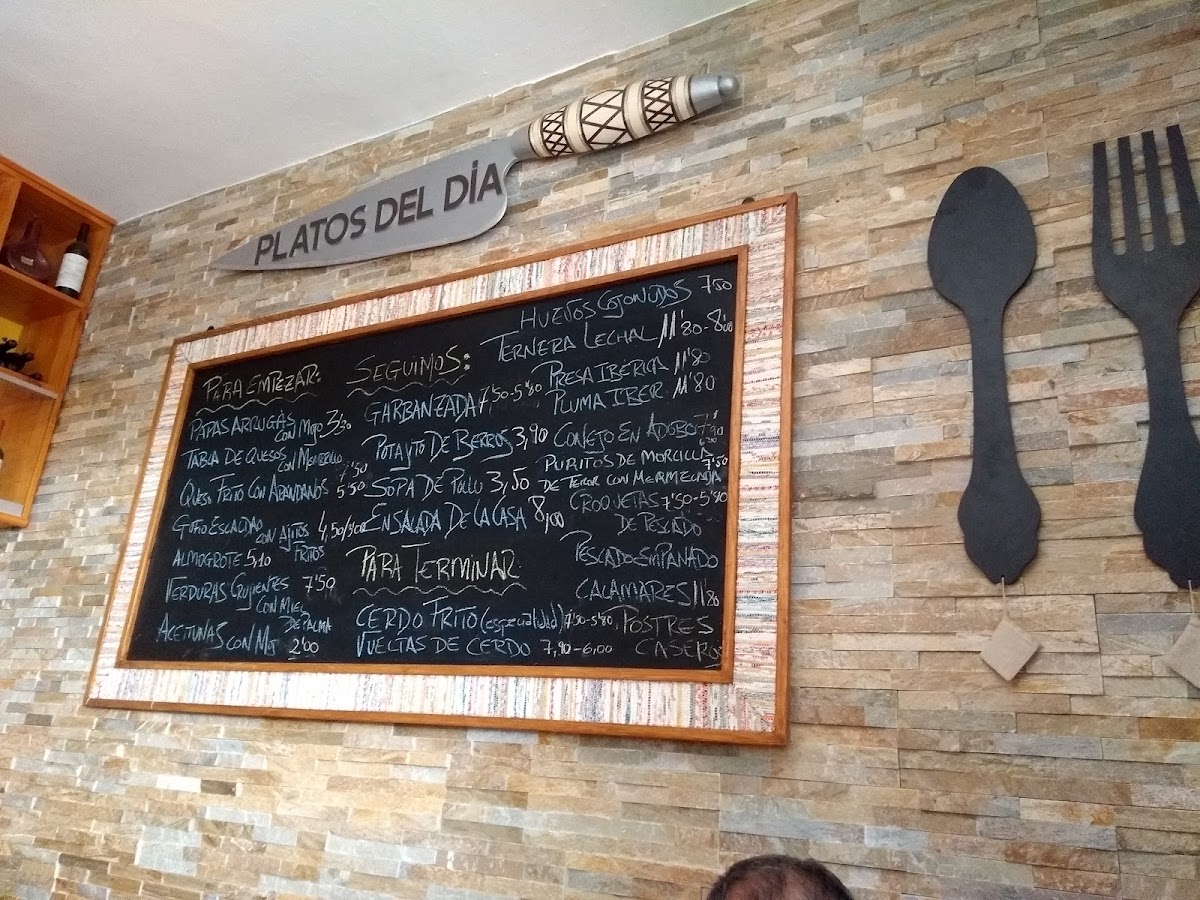 PLATOS DEL DÍA
PARA EMPEZAR:
PAPAS ARRUGAS
CON MOJO 3,30
TABLA DE QUESOS
CON MEMBRILLO 7'50
QUESO FRITO CON ARANDANOS 5'50
GOFIO ESCALDAO
CON AJITOS 4,50/
FRITOS
ALMOGROTE 5,10
VERDURAS CRUJIENTES 7'50
CON MIEL
DE PALMA
ACEITUNAS CON MJ 2'00
SEGUIMOS:
GARBANZADA 7'50-5'80
POTAJITO DE BERROS 3,90
SOPA DE POLLO 3,50
ENSALADA DE LA CASA 8,00
PARA TERMINAR
CERDO FRITO (especialidad) 7'50-5'80
VUELTAS DE CERDO 7,90-6,00
HUEVOS COJONUDOS 7'50
TERNERA LECHAL 11'80-8'00
PRESA IBÉRICA 11'80
PLUMA IBER. 11'80
CONEJO EN ADOBO 7'90
PURITOS DE MORCILLA 7'50
DE TEROR CON MERMELADA
CROQUETAS 7'50-5'80
DE PESCADO
PESCADO EMPANADO
CALAMARES 11'80
POSTRES
CASEROS